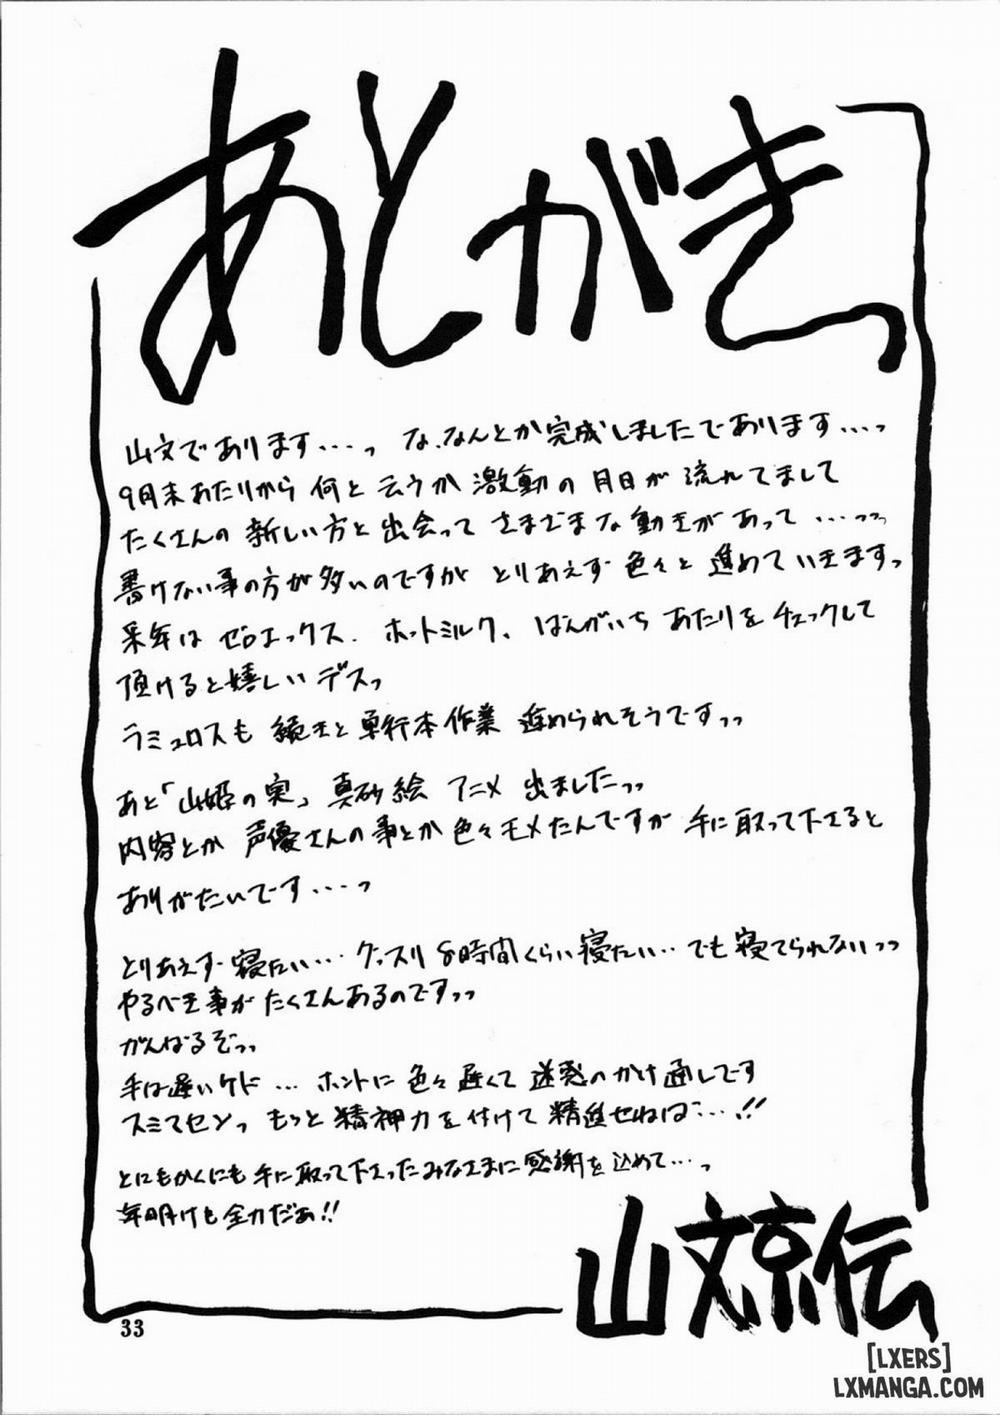 あとがきっ
山文であります・・・・っ な、なんとか完成しましたであります・・・・っ
9月末あたりから 何と云うか 激動の 月日が 流れてまして
たくさんの 新しい方と 出会って さまざまな 動きがあって ・・・・っっ
書けない事の方が多いのですが とりあえず 色々と 進めていきますっ
来年は ゼロエックス、ホットミルク、ばんがいち あたりを チェックして
頂けると嬉しいデスっ
ラミュロスも 続きと 単行本作業 進められそうですっっ
あと「山姫の実」真砂絵 アニメ 出ましたっっ
内容とか 声優さんの事とか 色々モメたんですが 手に取って下さると
ありがたいです・・・・っ
とりあえず 寝たい・・・グッスリ 8時間くらい寝たい・・でも 寝てられないっっ
やるべき事が たくさんあるのですっっ
がんばるぞっっ
手は遅いケド ・・・ ホントに 色々 遅くて 迷惑のかけ通しです
スミマセンっ もっと 精神力を付けて 精進せねば・・・・!!
とにもかくにも 手に取って下さったみなさまに感謝を込めて・・・・っ
年明けも 全力だぁ!!
山文京伝
33
[LXERS]
LXMANGA.COM